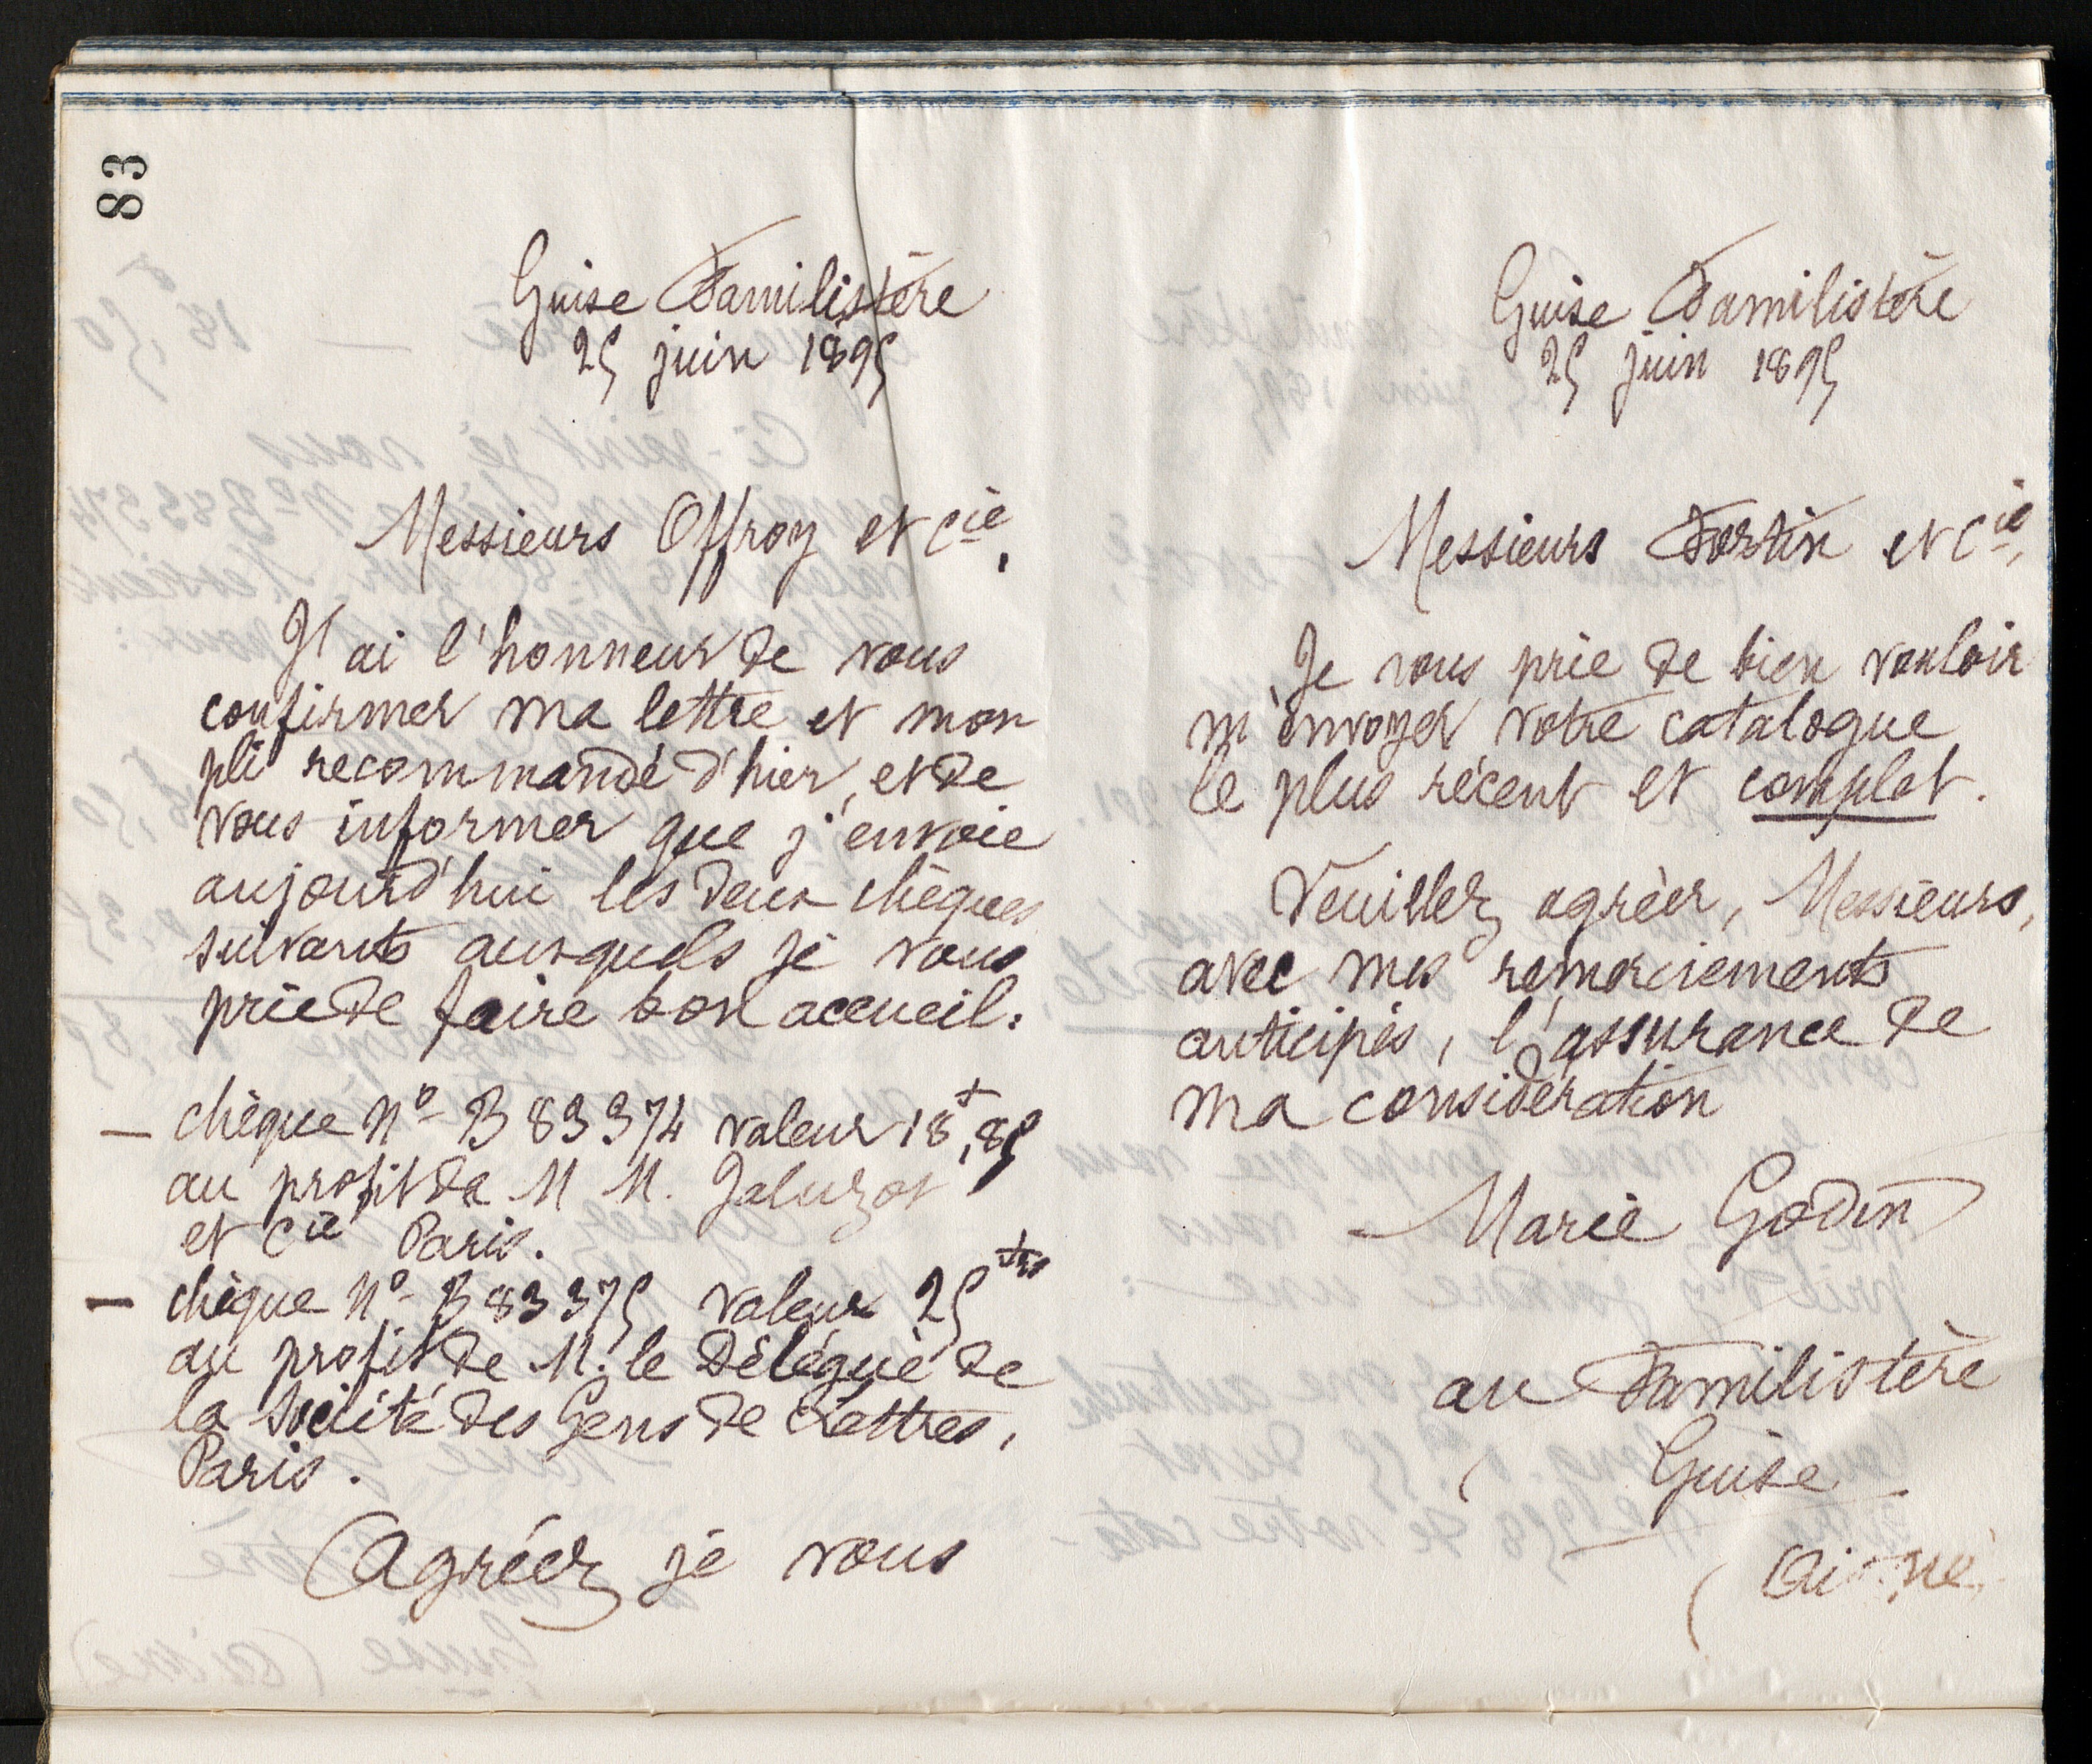 83
Guise Familistère
25 juin 1895
Messieurs Offroy et Cie,
J'ai l'honneur de vous
confirmer ma lettre et mon
pli recommandé d'hier, et de
vous informer que j'envoie
aujourd'hui les deux chèques
suivants auxquels je vous
prie de faire bon accueil:
— chèque No B 83374 valeur 18f,85
au profit de M M. Jaluzot
et Cie Paris.
— chèque No B 83375 valeur 25 frs
au profit de M. le Délégué de
la Société des Gens de Lettres,
Paris.
Agréez je vous
Guise Familistère
25 juin 1895
Messieurs Fortin et Cie,
Je vous prie de bien vouloir
m'envoyer votre catalogue
le plus récent et complet.
Veuillez agréer, Messieurs,
avec mes remerciements
anticipés, l'assurance de
ma considération
Marie Godin
au Familistère
Guise
(Aisne)